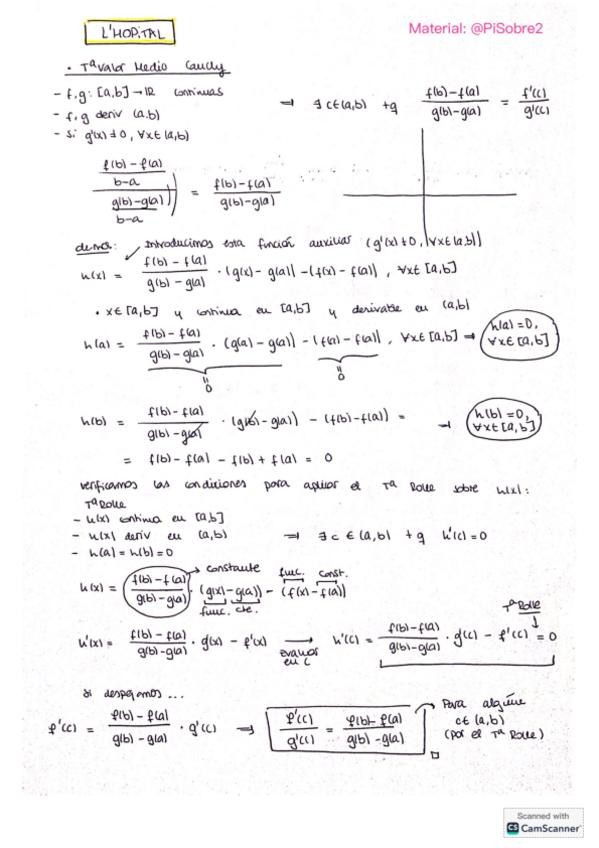 L'HOPITAL
Material: @PiSobre2
• Tª Valor Medio Cauchy
- f,g: [a,b] → IR continuas
- f,g deriv (a,b)
- Si g'(x) ≠ 0, ∀x∈(a,b)
⇒ ∃ c∈(a,b) tq (f(b)-f(a))/(g(b)-g(a)) = f'(c)/g'(c)
((f(b)-f(a))/(b-a))/((g(b)-g(a))/(b-a)) = (f(b)-f(a))/(g(b)-g(a))
demos: Introducimos esta función auxiliar (g'(x)≠0, ∀x∈(a,b))
h(x) = (f(b)-f(a))/(g(b)-g(a)) · (g(x)-g(a)) - (f(x)-f(a)), ∀x∈[a,b]
• x∈[a,b] y continua en [a,b] y derivable en (a,b)
h(a) = (f(b)-f(a))/(g(b)-g(a)) · (g(a)-g(a)) - (f(a)-f(a)), ∀x∈[a,b] → h(a)=0, ∀x∈[a,b]
0
0
h(b) = (f(b)-f(a))/(g(b)-g(a)) · (g(b)-g(a)) - (f(b)-f(a)) = → h(b)=0, ∀x∈[a,b]
= f(b)-f(a)-f(b)+f(a) = 0
verificamos las condiciones para aplicar el Tª Rolle sobre h(x):
Tª Rolle
- h(x) continua en [a,b]
- h(x) deriv en (a,b) ⇒ ∃ c∈(a,b) tq h'(c)=0
- h(a)=h(b)=0
→ constante
func. const.
h(x) = (f(b)-f(a))/(g(b)-g(a)) · (g(x)-g(a)) - (f(x)-f(a))
func. cte.
Tª Rolle
h'(x) = (f(b)-f(a))/(g(b)-g(a)) · g'(x) - f'(x) → h'(c) = (f(b)-f(a))/(g(b)-g(a)) · g'(c) - f'(c) = 0
en c
Si despejamos...
f'(c) = (f(b)-f(a))/(g(b)-g(a)) · g'(c) ⇒ f'(c)/g'(c) = (f(b)-f(a))/(g(b)-g(a))
Para algún
c∈(a,b)
(por el Tª Rolle)
Scanned with
CS CamScanner